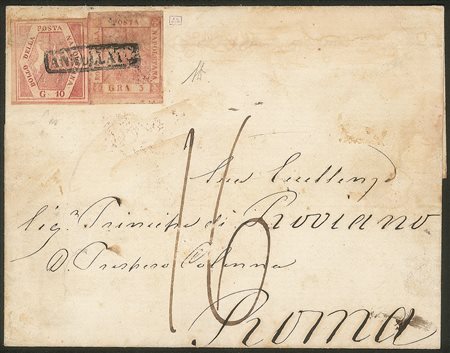 BOLLO DELLA POSTA NAPOLETANA
G 10
POSTA NAPOLETANA
GRA 3
ANNULLATO
16
Sua Eccellenza
Sig.r Principe di Roviano
D. Prospero Colonna
Roma